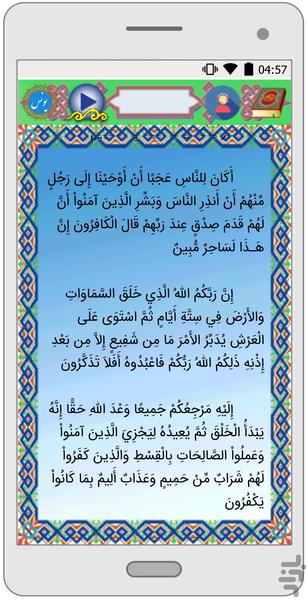 04:57
یونس
أَكَانَ لِلنَّاسِ عَجَبًا أَنْ أَوْحَيْنَا إِلَى رَجُلٍ
مِّنْهُمْ أَنْ أَنذِرِ النَّاسَ وَبَشِّرِ الَّذِينَ آمَنُواْ أَنَّ
لَهُمْ قَدَمَ صِدْقٍ عِندَ رَبِّهِمْ قَالَ الْكَافِرُونَ إِنَّ
هَـذَا لَسَاحِرٌ مُّبِينٌ
إِنَّ رَبَّكُمُ اللّهُ الَّذِي خَلَقَ السَّمَاوَاتِ
وَالأَرْضَ فِي سِتَّةِ أَيَّامٍ ثُمَّ اسْتَوَى عَلَى
الْعَرْشِ يُدَبِّرُ الأَمْرَ مَا مِن شَفِيعٍ إِلاَّ مِن بَعْدِ
إِذْنِهِ ذَلِكُمُ اللّهُ رَبُّكُمْ فَاعْبُدُوهُ أَفَلاَ تَذَكَّرُونَ
إِلَيْهِ مَرْجِعُكُمْ جَمِيعًا وَعْدَ اللّهِ حَقًّا إِنَّهُ
يَبْدَأُ الْخَلْقَ ثُمَّ يُعِيدُهُ لِيَجْزِيَ الَّذِينَ آمَنُواْ
وَعَمِلُواْ الصَّالِحَاتِ بِالْقِسْطِ وَالَّذِينَ كَفَرُواْ
لَهُمْ شَرَابٌ مِّنْ حَمِيمٍ وَعَذَابٌ أَلِيمٌ بِمَا كَانُواْ
يَكْفُرُونَ
بازار